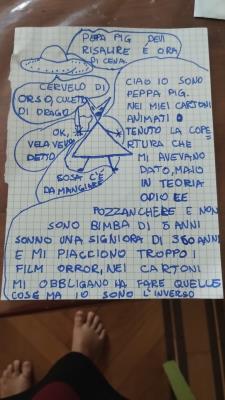 PEPPA PIG DEVI
RISALIRE È ORA
DI CENA.
CERVELO DI
ORSO, CULETTO
DI DRAGO
OK,
VELA VEVO
DETTO
COSA C'È
DA MANGIARE
CIAO IO SONO
PEPPA PIG.
NEI MIEI CARTONI
ANIMATI O
TENUTO LA COPE
RTURA CHE
MI AVEVANO
DATO, MA IO
IN TEORIA
ODIO LE
POZZANCHERE E NON
SONO BIMBA DI 5 ANNI
SONNO UNA SIGNIORA DI 360 ANNI
E MI PIACCIONO TROPPO I
FILM ORROR, NEI CARTONI
MI OBBLIGANO HA FARE QUELLE
COSE MA IO SONO L'INVERSO